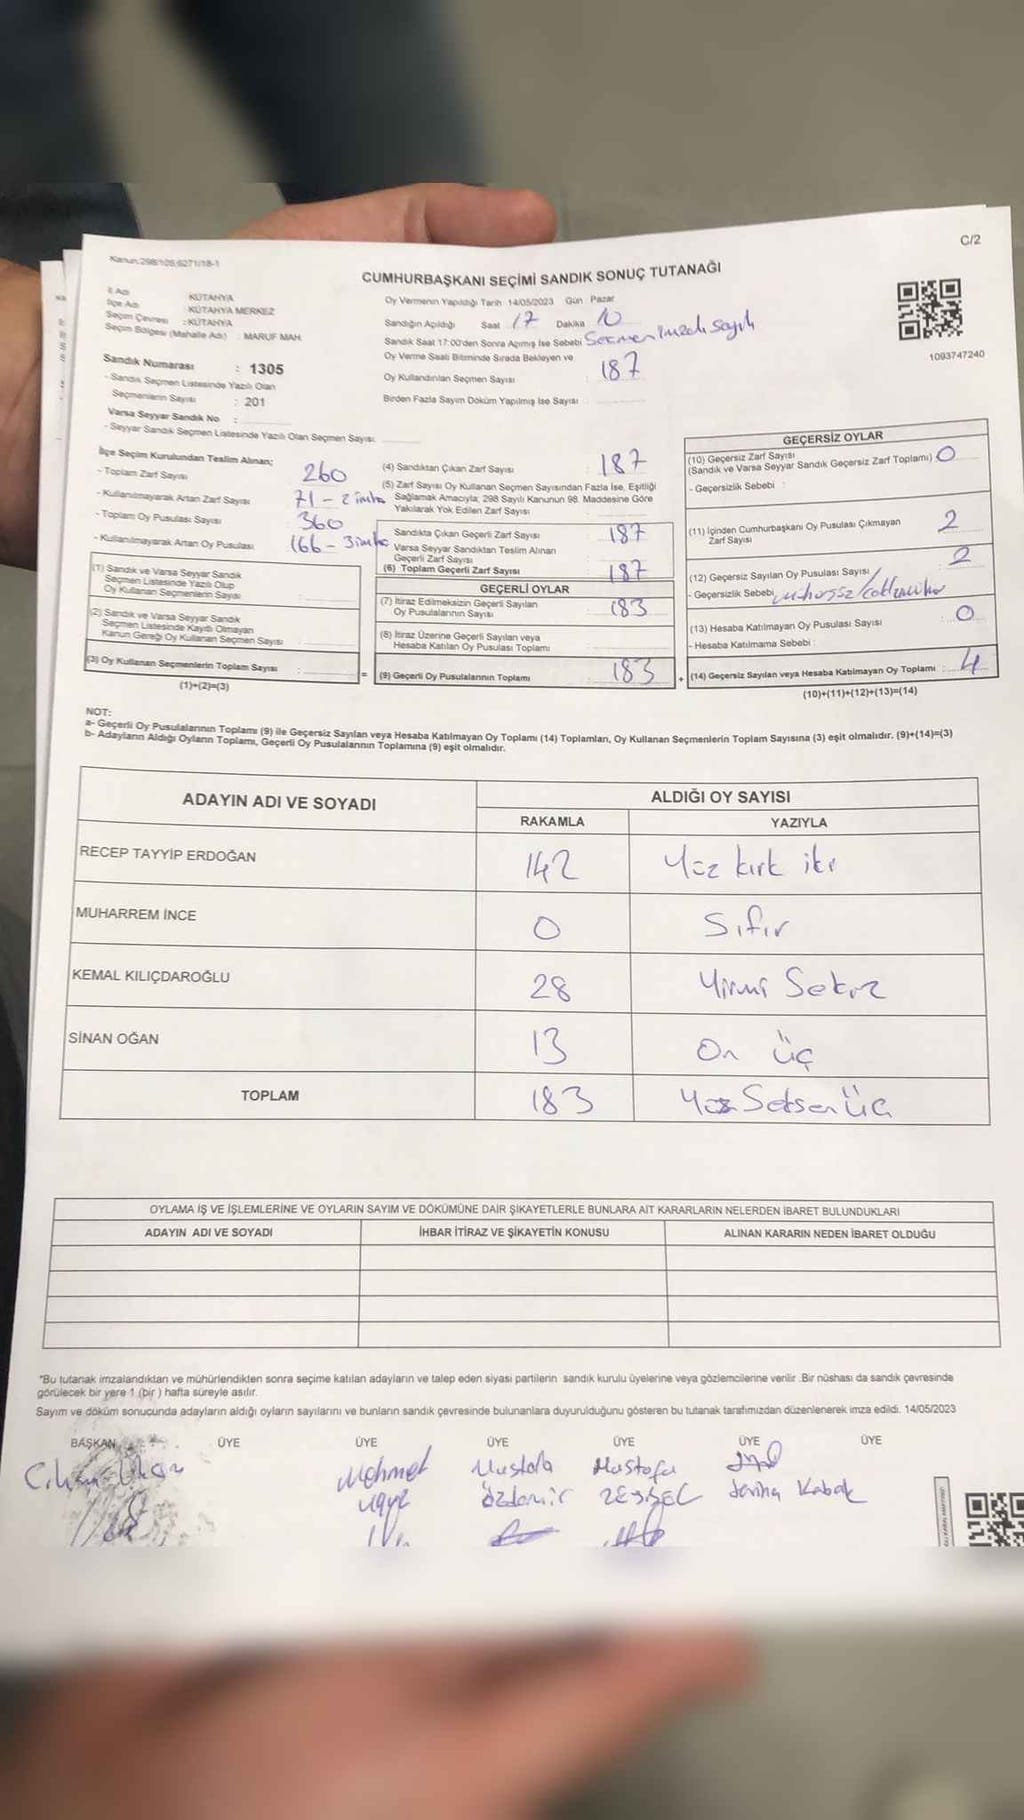 Kanun:298/105,6271/18-1
C/2
CUMHURBAŞKANI SEÇİMİ SANDIK SONUÇ TUTANAĞI
İl Adı : KÜTAHYA
İlçe Adı : KÜTAHYA MERKEZ
Seçim Çevresi : KÜTAHYA
Seçim Bölgesi (Mahalle Adı) : MARUF MAH.
Sandık Numarası : 1305
- Sandık Seçmen Listesinde Yazılı Olan
Seçmenlerin Sayısı : 201
Varsa Seyyar Sandık No :
- Seyyar Sandık Seçmen Listesinde Yazılı Olan Seçmen Sayısı:
Oy Vermenin Yapıldığı Tarih 14/05/2023 Gün Pazar
Sandığın Açıldığı Saat 17 Dakika 10
Sandık Saat 17:00'den Sonra Açımış İse Sebebi Seçmen imzalı sayılı
Oy Verme Saati Bitiminde Sırada Bekleyen ve
Oy Kullandırılan Seçmen Sayısı 187
Birden Fazla Sayım Döküm Yapılmış İse Sayısı :
1093747240
İlçe Seçim Kurulundan Teslim Alınan;
- Toplam Zarf Sayısı 260
- Kullanılmayarak Artan Zarf Sayısı 71 - 2 imha
- Toplam Oy Pusulası Sayısı 360
- Kullanılmayarak Artan Oy Pusulası 166 - 3 imha
(1) Sandık ve Varsa Seyyar Sandık
Seçmen Listesinde Yazılı Olup
Oy Kullanan Seçmenlerin Sayısı :
(2) Sandık ve Varsa Seyyar Sandık
Seçmen Listesinde Kayıtlı Olmayan
Kanun Gereği Oy Kullanan Seçmen Sayısı :
(3) Oy Kullanan Seçmenlerin Toplam Sayısı :
(1)+(2)=(3)
(4) Sandıktan Çıkan Zarf Sayısı : 187
(5) Zarf Sayısı Oy Kullanan Seçmen Sayısından Fazla İse, Eşitliği
Sağlamak Amacıyla; 298 Sayılı Kanunun 98. Maddesine Göre
Yakılarak Yok Edilen Zarf Sayısı :
Sandıkta Çıkan Geçerli Zarf Sayısı : 187
Varsa Seyyar Sandıktan Teslim Alınan
Geçerli Zarf Sayısı :
(6) Toplam Geçerli Zarf Sayısı : 187
GEÇERLİ OYLAR
(7) İtiraz Edilmeksizin Geçerli Sayılan
Oy Pusulalarının Sayısı : 183
(8) İtiraz Üzerine Geçerli Sayılan veya
Hesaba Katılan Oy Pusulası Toplamı :
= (9) Geçerli Oy Pusulalarının Toplamı : 183
GEÇERSİZ OYLAR
(10) Geçersiz Zarf Sayısı
(Sandık ve Varsa Seyyar Sandık Geçersiz Zarf Toplamı) 0
- Geçersizlik Sebebi :
(11) İçinden Cumhurbaşkanı Oy Pusulası Çıkmayan
Zarf Sayısı : 2
(12) Geçersiz Sayılan Oy Pusulası Sayısı : 2
- Geçersizlik Sebebi
(13) Hesaba Katılmayan Oy Pusulası Sayısı : 0
- Hesaba Katılmama Sebebi :
+ (14) Geçersiz Sayılan veya Hesaba Katılmayan Oy Toplamı : 4
(10)+(11)+(12)+(13)=(14)
NOT:
a- Geçerli Oy Pusulalarının Toplamı (9) ile Geçersiz Sayılan veya Hesaba Katılmayan Oy Toplamı (14) Toplamları, Oy Kullanan Seçmenlerin Toplam Sayısına (3) eşit olmalıdır. (9)+(14)=(3)
b- Adayların Aldığı Oyların Toplamı, Geçerli Oy Pusulalarının Toplamına (9) eşit olmalıdır.
ADAYIN ADI VE SOYADI ALDIĞI OY SAYISI
RAKAMLA YAZIYLA
RECEP TAYYİP ERDOĞAN 142 Yüz kırk iki
MUHARREM İNCE 0 Sıfır
KEMAL KILIÇDAROĞLU 28 Yirmi Sekiz
SİNAN OĞAN 13 On üç
TOPLAM 183 Yüz Seksen Üç
OYLAMA İŞ VE İŞLEMLERİNE VE OYLARIN SAYIM VE DÖKÜMÜNE DAİR ŞİKAYETLERLE BUNLARA AİT KARARLARIN NELERDEN İBARET BULUNDUKLARI
ADAYIN ADI VE SOYADI İHBAR İTİRAZ VE ŞİKAYETİN KONUSU ALINAN KARARIN NEDEN İBARET OLDUĞU
"Bu tutanak imzalandıktan ve mühürlendikten sonra seçime katılan adayların ve talep eden siyasi partilerin sandık kurulu üyelerine veya gözlemcilerine verilir .Bir nüshası da sandık çevresinde
görülecek bir yere 1 (bir ) hafta süreyle asılır.
Sayım ve döküm sonucunda adayların aldığı oyların sayılarını ve bunların sandık çevresinde bulunanlara duyurulduğunu gösteren bu tutanak tarafımızdan düzenlenerek imza edildi. 14/05/2023
BAŞKAN ÜYE ÜYE ÜYE ÜYE ÜYE ÜYE
Mehmet Mustafa Mustafa
Özdemir Kabak